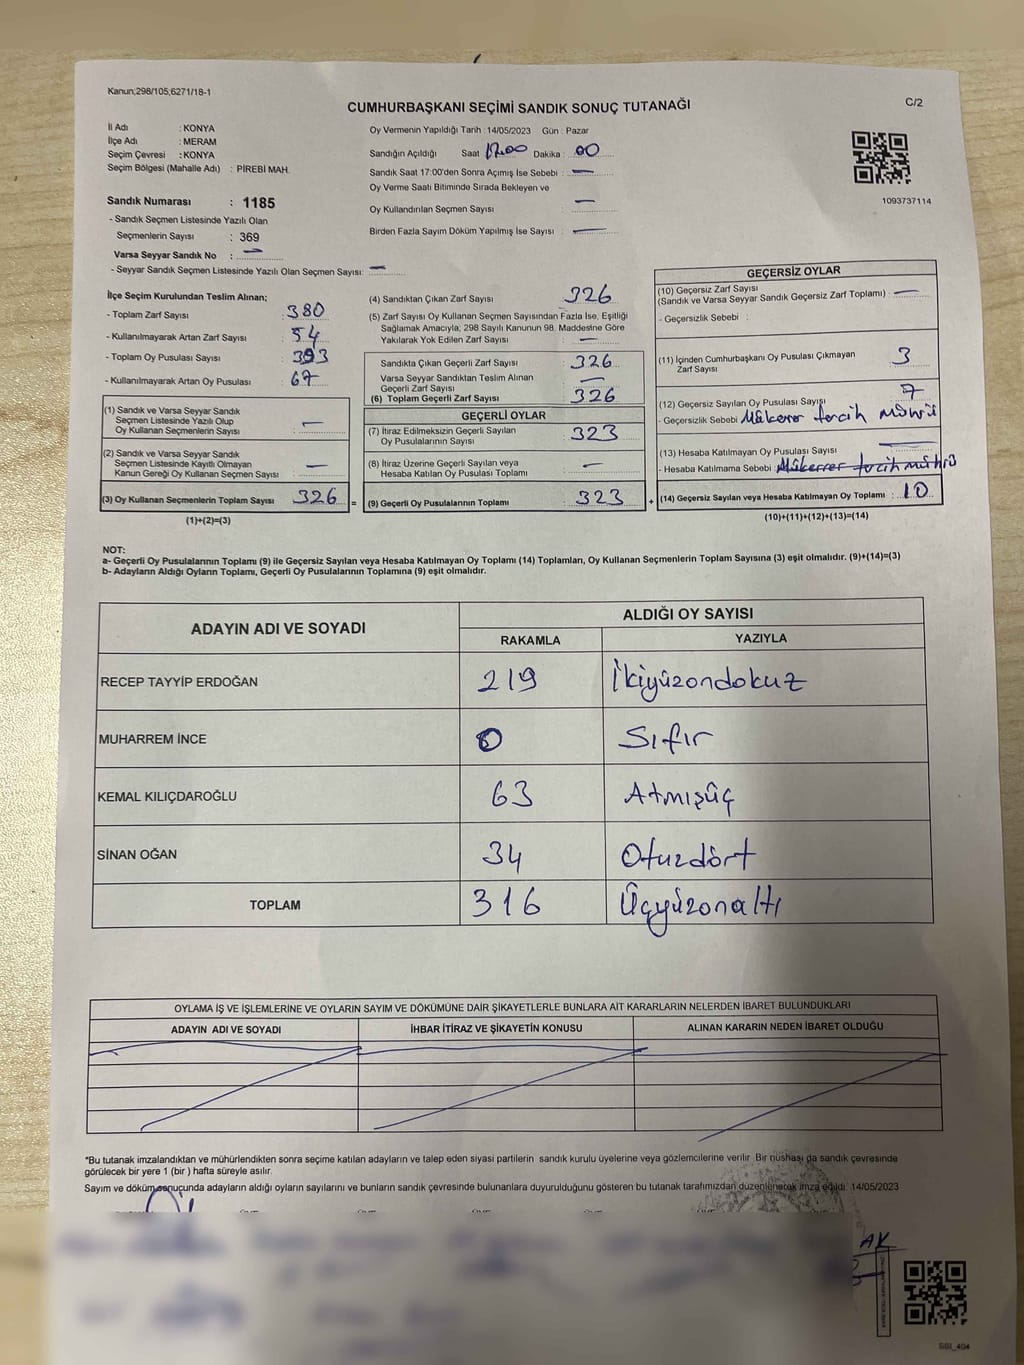 Kanun;298/105,6271/18-1
CUMHURBAŞKANI SEÇİMİ SANDIK SONUÇ TUTANAĞI
C/2
İl Adı : KONYA
İlçe Adı : MERAM
Seçim Çevresi : KONYA
Seçim Bölgesi (Mahalle Adı) : PİREBİ MAH.
Oy Vermenin Yapıldığı Tarih : 14/05/2023 Gün : Pazar
Sandığın Açıldığı Saat 17.00 Dakika : 00
Sandık Saat 17:00'den Sonra Açımış İse Sebebi : —
Oy Verme Saati Bitiminde Sırada Bekleyen ve
Oy Kullandırılan Seçmen Sayısı : —
Birden Fazla Sayım Döküm Yapılmış İse Sayısı : —
1093737114
Sandık Numarası : 1185
- Sandık Seçmen Listesinde Yazılı Olan
Seçmenlerin Sayısı : 369
Varsa Seyyar Sandık No : —
- Seyyar Sandık Seçmen Listesinde Yazılı Olan Seçmen Sayısı: —
İlçe Seçim Kurulundan Teslim Alınan;
- Toplam Zarf Sayısı : 380
- Kullanılmayarak Artan Zarf Sayısı : 54
- Toplam Oy Pusulası Sayısı : 393
- Kullanılmayarak Artan Oy Pusulası : 67
(1) Sandık ve Varsa Seyyar Sandık
Seçmen Listesinde Yazılı Olup
Oy Kullanan Seçmenlerin Sayısı : —
(2) Sandık ve Varsa Seyyar Sandık
Seçmen Listesinde Kayıtlı Olmayan
Kanun Gereği Oy Kullanan Seçmen Sayısı : —
(3) Oy Kullanan Seçmenlerin Toplam Sayısı : 326
(1)+(2)=(3)
(4) Sandıktan Çıkan Zarf Sayısı : 326
(5) Zarf Sayısı Oy Kullanan Seçmen Sayısından Fazla İse, Eşitliği
Sağlamak Amacıyla; 298 Sayılı Kanunun 98. Maddesine Göre
Yakılarak Yok Edilen Zarf Sayısı : —
Sandıkta Çıkan Geçerli Zarf Sayısı : 326
Varsa Seyyar Sandıktan Teslim Alınan
Geçerli Zarf Sayısı : —
(6) Toplam Geçerli Zarf Sayısı : 326
GEÇERLİ OYLAR
(7) İtiraz Edilmeksizin Geçerli Sayılan
Oy Pusulalarının Sayısı : 323
(8) İtiraz Üzerine Geçerli Sayılan veya
Hesaba Katılan Oy Pusulası Toplamı : —
= (9) Geçerli Oy Pusulalarının Toplamı : 323
GEÇERSİZ OYLAR
(10) Geçersiz Zarf Sayısı
(Sandık ve Varsa Seyyar Sandık Geçersiz Zarf Toplamı) : —
- Geçersizlik Sebebi :
(11) İçinden Cumhurbaşkanı Oy Pusulası Çıkmayan
Zarf Sayısı : 3
(12) Geçersiz Sayılan Oy Pusulası Sayısı : 7
- Geçersizlik Sebebi : Mükerrer tercih mührü
(13) Hesaba Katılmayan Oy Pusulası Sayısı : —
- Hesaba Katılmama Sebebi : Mükerrer tercih mührü
+ (14) Geçersiz Sayılan veya Hesaba Katılmayan Oy Toplamı : 10
(10)+(11)+(12)+(13)=(14)
NOT:
a- Geçerli Oy Pusulalarının Toplamı (9) ile Geçersiz Sayılan veya Hesaba Katılmayan Oy Toplamı (14) Toplamları, Oy Kullanan Seçmenlerin Toplam Sayısına (3) eşit olmalıdır. (9)+(14)=(3)
b- Adayların Aldığı Oyların Toplamı, Geçerli Oy Pusulalarının Toplamına (9) eşit olmalıdır.
ADAYIN ADI VE SOYADI
ALDIĞI OY SAYISI
RAKAMLA YAZIYLA
RECEP TAYYİP ERDOĞAN 219 İkiyüzondokuz
MUHARREM İNCE 0 Sıfır
KEMAL KILIÇDAROĞLU 63 Atmışüç
SİNAN OĞAN 34 Otuzdört
TOPLAM 316 Üçyüzonaltı
OYLAMA İŞ VE İŞLEMLERİNE VE OYLARIN SAYIM VE DÖKÜMÜNE DAİR ŞİKAYETLERLE BUNLARA AİT KARARLARIN NELERDEN İBARET BULUNDUKLARI
ADAYIN ADI VE SOYADI İHBAR İTİRAZ VE ŞİKAYETİN KONUSU ALINAN KARARIN NEDEN İBARET OLDUĞU
*Bu tutanak imzalandıktan ve mühürlendikten sonra seçime katılan adayların ve talep eden siyasi partilerin sandık kurulu üyelerine veya gözlemcilerine verilir. Bir nüshası da sandık çevresinde
görülecek bir yere 1 (bir ) hafta süreyle asılır.
Sayım ve döküm sonucunda adayların aldığı oyların sayılarını ve bunların sandık çevresinde bulunanlara duyurulduğunu gösteren bu tutanak tarafımızdan düzenlenerek imza edildi. 14/05/2023
AK
SSI_404